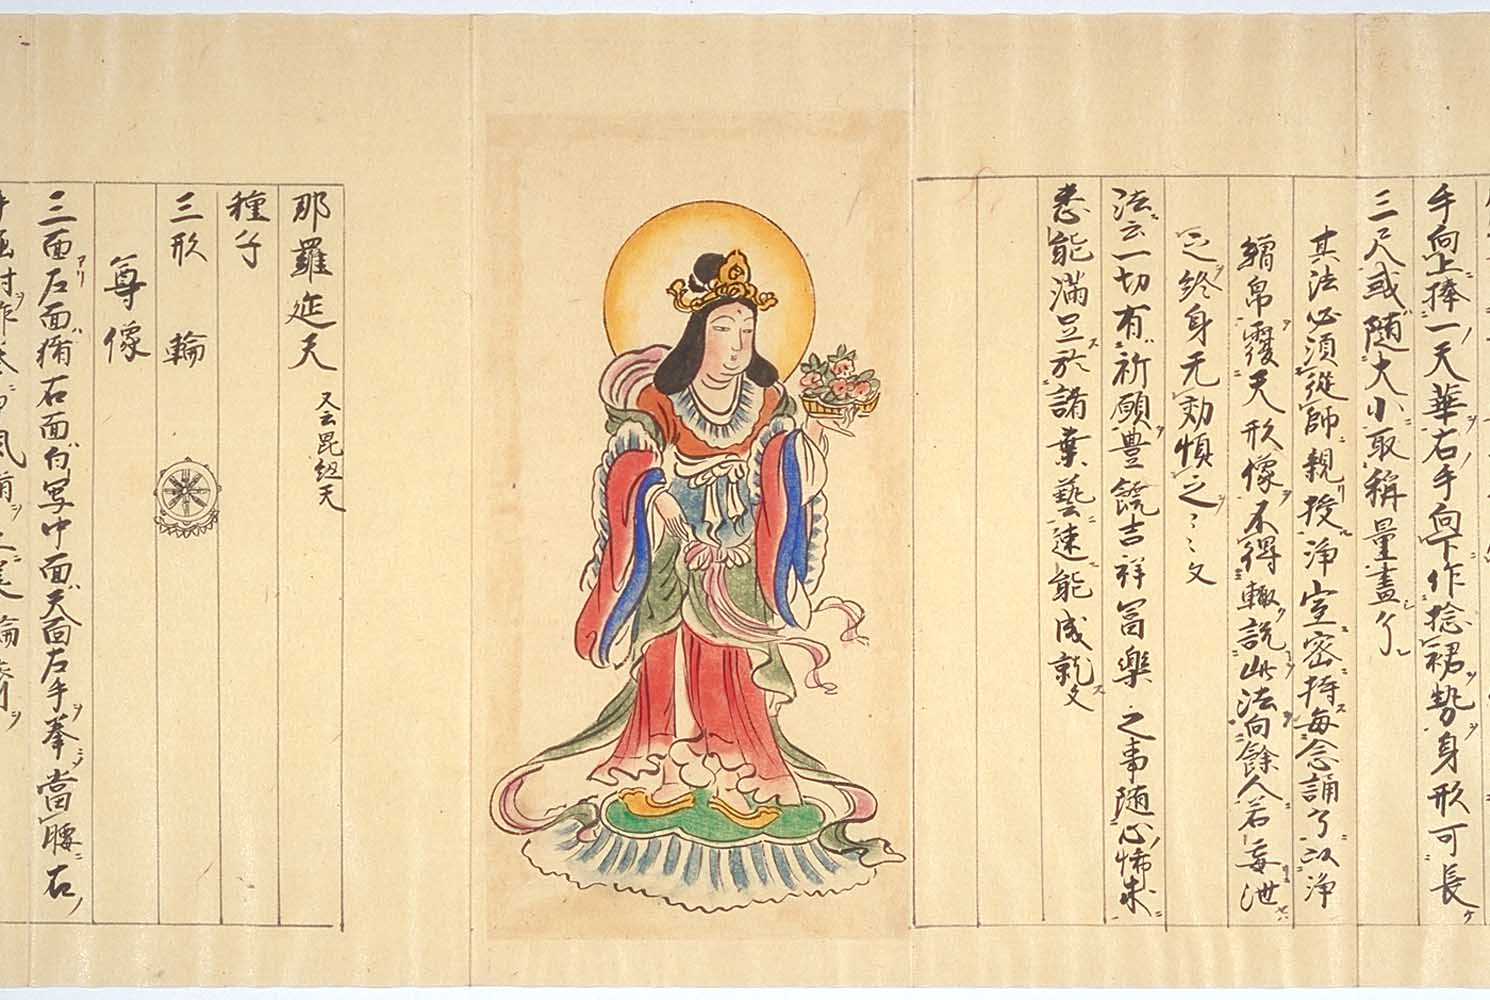 手向上捧一天華右手向下作捻裙勢身形可長
三尺或随大小取稱量畫了
其法必須從師親授淨室密持每念誦了以淨
繒帛覆天形像不得輙說此法向餘人若妄泄
之終身无効慎之〻〻文
法云一切有祈願豊饒吉祥冨樂之事随心悕求
悉能滿足於諸業藝速能成就文
那羅延天 又云毘紐天
種子
三形 輪
尊像
三面左面猪右面白写中面天面左手拳當腰右